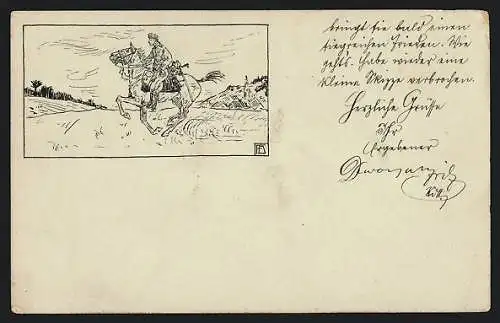 bringt sie bald einen
siegreichen Frieden. Wie
gehts. Habe wieder eine
kleine Skizze verbrochen.
Herzliche Grüsse
Ihr
Ergebener